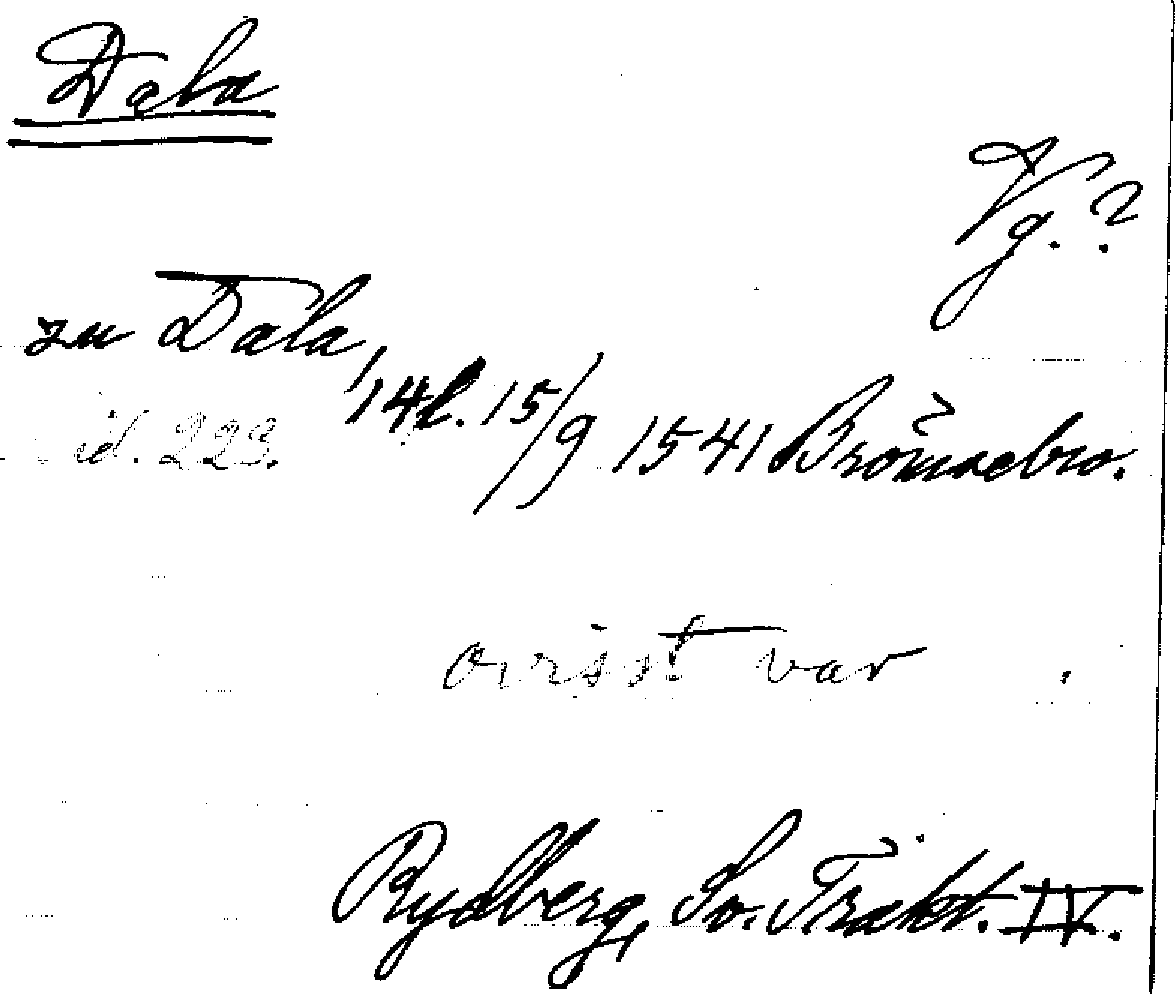 Dala
Vg.?
zu Dala, 148. 15/9 1541 Brömsebro.
id. 223.
ovisst var
Rydberg, Sv. Trakt. IV.